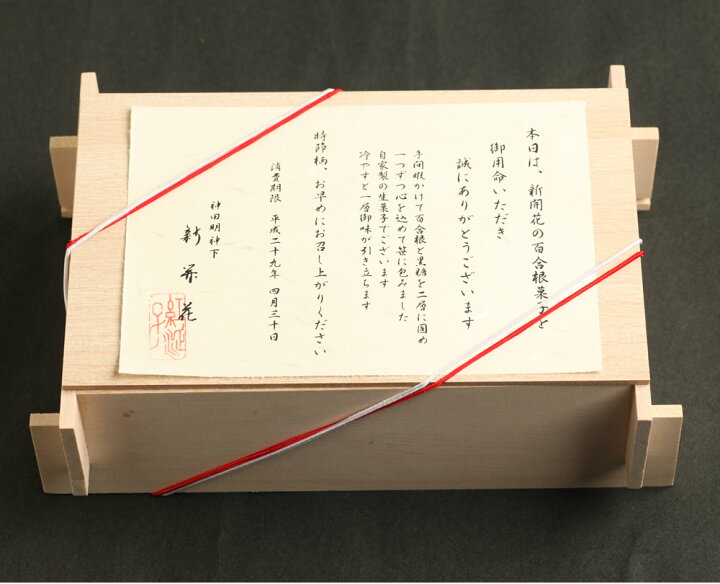 本日は、新開花の百合根菓子を
御用命いただき
誠にありがとうございます
手間暇かけて百合根と黒糖を二層に固め
一つずつ心を込めて笹に包みました
自家製の生菓子でございます
冷やすと一層御味が引き立ちます
時節柄、お早めにお召し上がりください
消費期限 平成二十九年 四月三十日
神田明神下
新開花